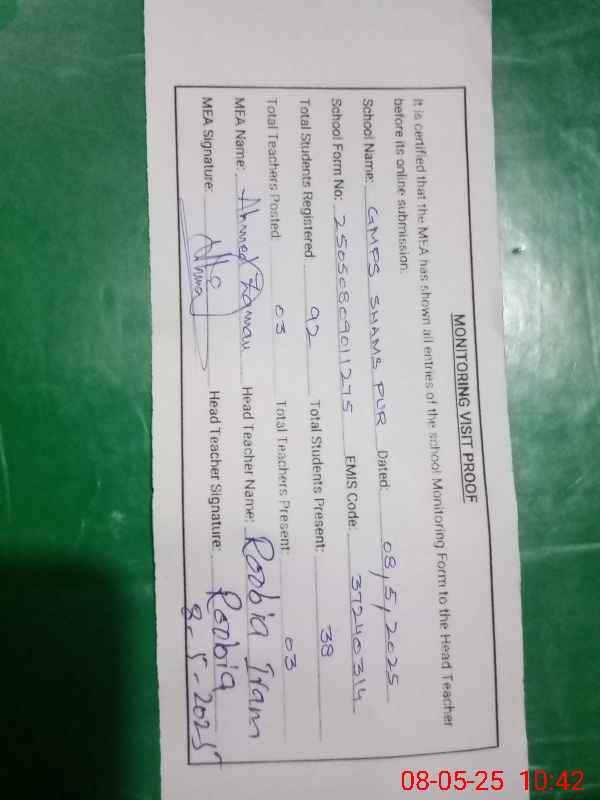 MONITORING VISIT PROOF
It is certified that the MEA has shown all entries of the school Monitoring Form to the Head Teacher
before its online submission:
School Name: GMPS SHAMS PUR Dated: 08,5,2025
School Form No: 25050809011275 EMIS Code: 37240314
Total Students Registered: 92 Total Students Present: 38
Total Teachers Posted: 03 Total Teachers Present: 03
MEA Name: Ahmed Zaman Head Teacher Name: Roobia Iram
MEA Signature: Head Teacher Signature: Roobia
8-5-2025
08-05-25 10:42